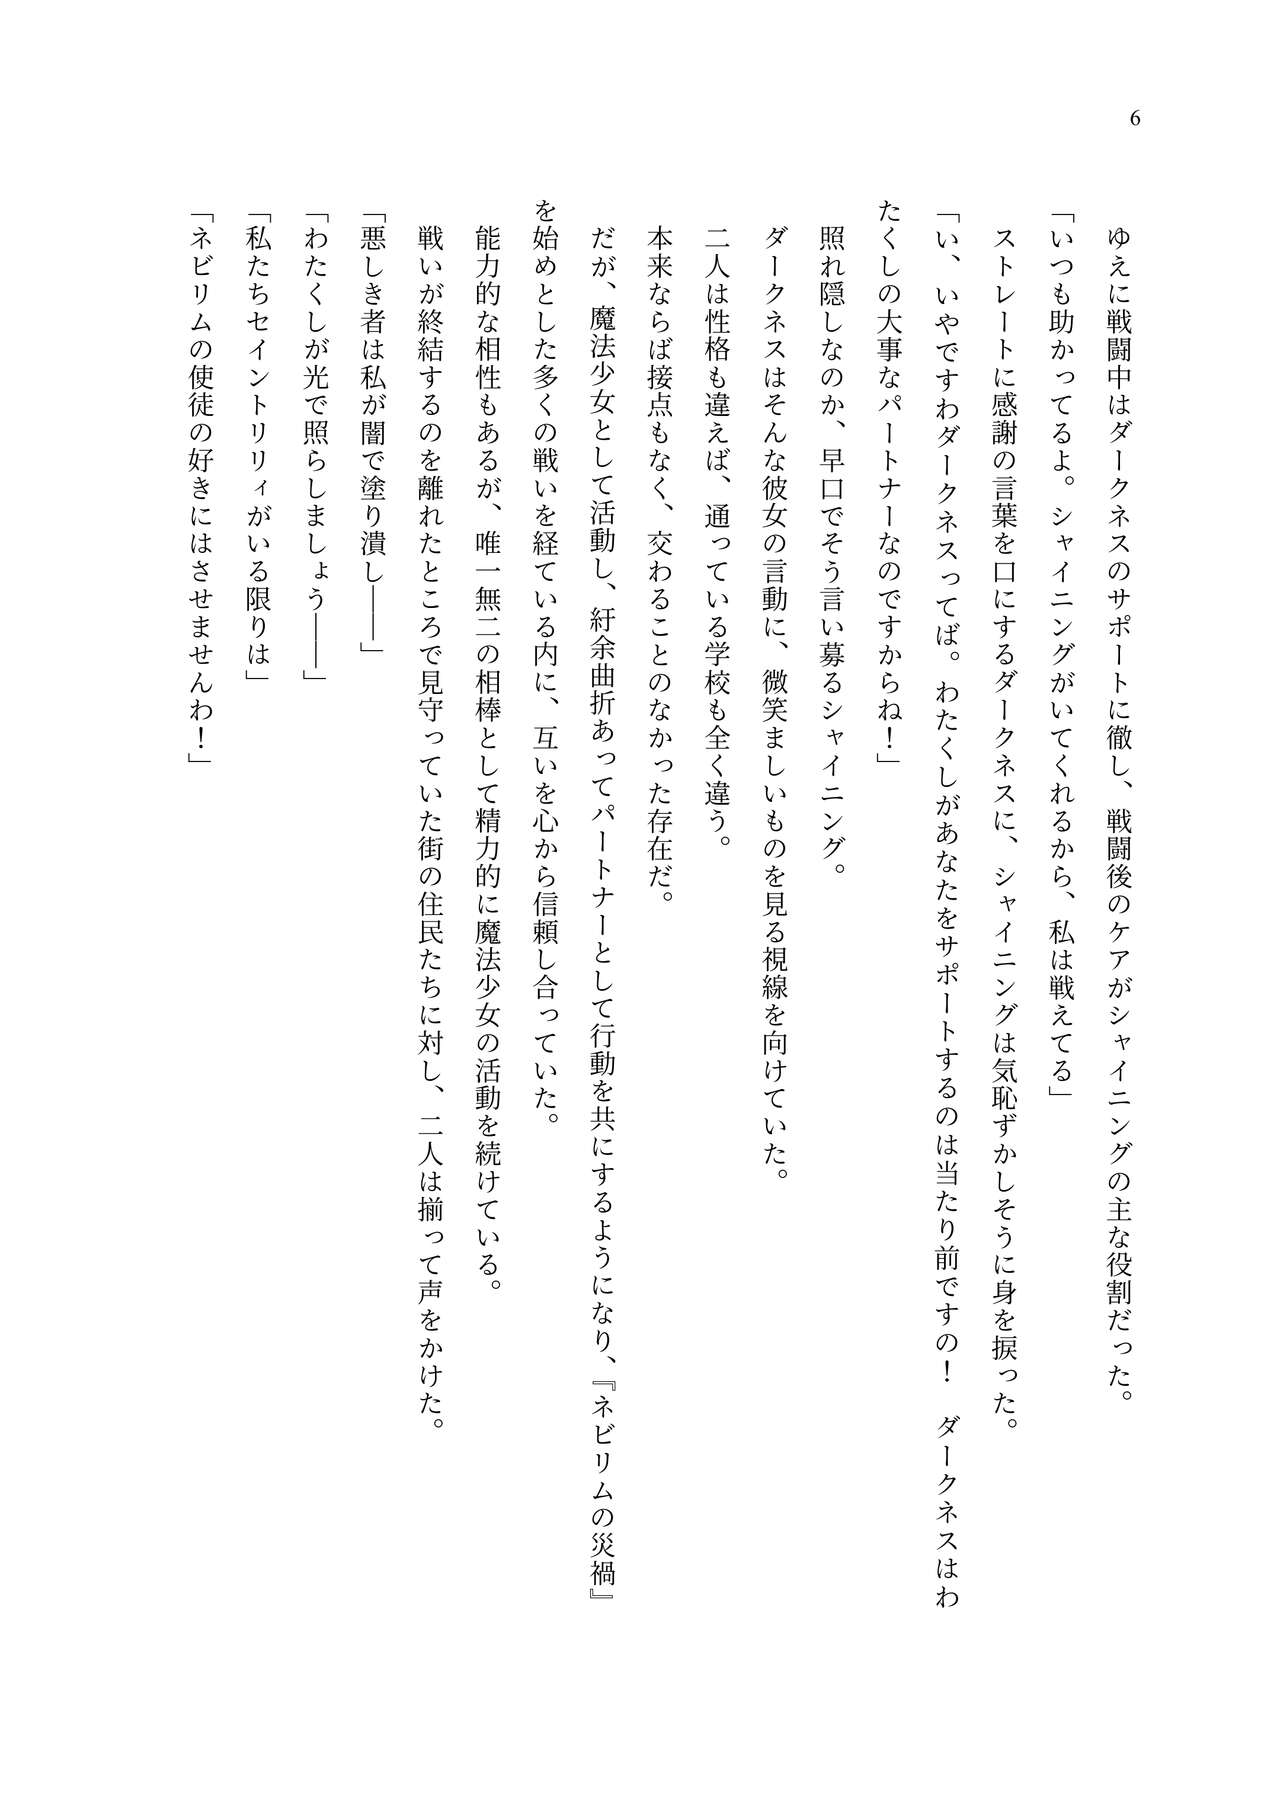 6
　ゆえに戦闘中はダークネスのサポートに徹し、戦闘後のケアがシャイニングの主な役割だった。
「いつも助かってるよ。シャイニングがいてくれるから、私は戦えてる」
　ストレートに感謝の言葉を口にするダークネスに、シャイニングは気恥ずかしそうに身を捩った。
「い、いやですわダークネスってば。わたくしがあなたをサポートするのは当たり前ですの！　ダークネスはわ
たくしの大事なパートナーなのですからね！」
　照れ隠しなのか、早口でそう言い募るシャイニング。
　ダークネスはそんな彼女の言動に、微笑ましいものを見る視線を向けていた。
　二人は性格も違えば、通っている学校も全く違う。
　本来ならば接点もなく、交わることのなかった存在だ。
　だが、魔法少女として活動し、紆余曲折あってパートナーとして行動を共にするようになり、『ネビリムの災禍』
を始めとした多くの戦いを経ている内に、互いを心から信頼し合っていた。
　能力的な相性もあるが、唯一無二の相棒として精力的に魔法少女の活動を続けている。
　戦いが終結するのを離れたところで見守っていた街の住民たちに対し、二人は揃って声をかけた。
「悪しき者は私が闇で塗り潰し――」
「わたくしが光で照らしましょう――」
「私たちセイントリリィがいる限りは」
「ネビリムの使徒の好きにはさせませんわ！」